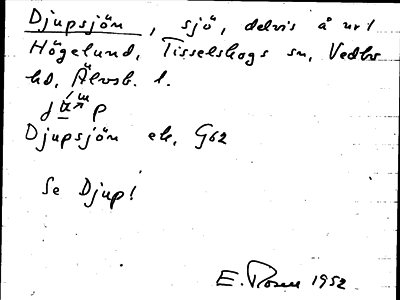 Djupsjön, sjö, delvis å nr 1
Högelund, Tisselskogs sn, Vedbo
hd, Älvsb. l.
Djupsjön ek, G62
Se Djup!
E. Rosen 1952